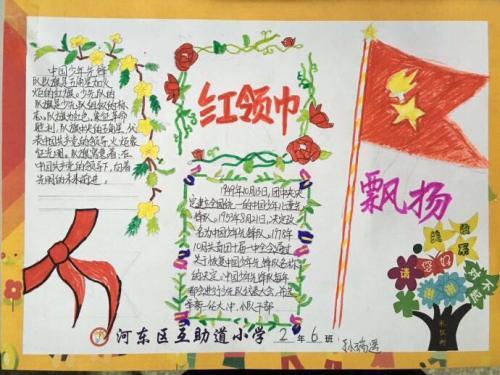 中国少年先锋
队队旗是五角星加火
炬的红旗。少先队的
队旗是少先队组织的标
志。队旗为红色,象征革命
胜利,队旗中央的五角星,代
表中国共产党的领导,火炬象
征光明。队旗意意着:在
中国共产党的领导下,向着
光明的未来前进。
红领巾
1949年10月13日,团中央决
定建立全国统一的中国少年儿童先
锋队。1953年8月21日,决定改
名为中国少年先锋队。1978年
10月共青团十届一中全会通过
关于恢复中国少年先锋队名称
的决定。中国少年先锋队每年
都会进行少先队代表大会,
飘扬
请
你好
谢谢
对不起
礼仪树
河东区互助道小学 2年6班